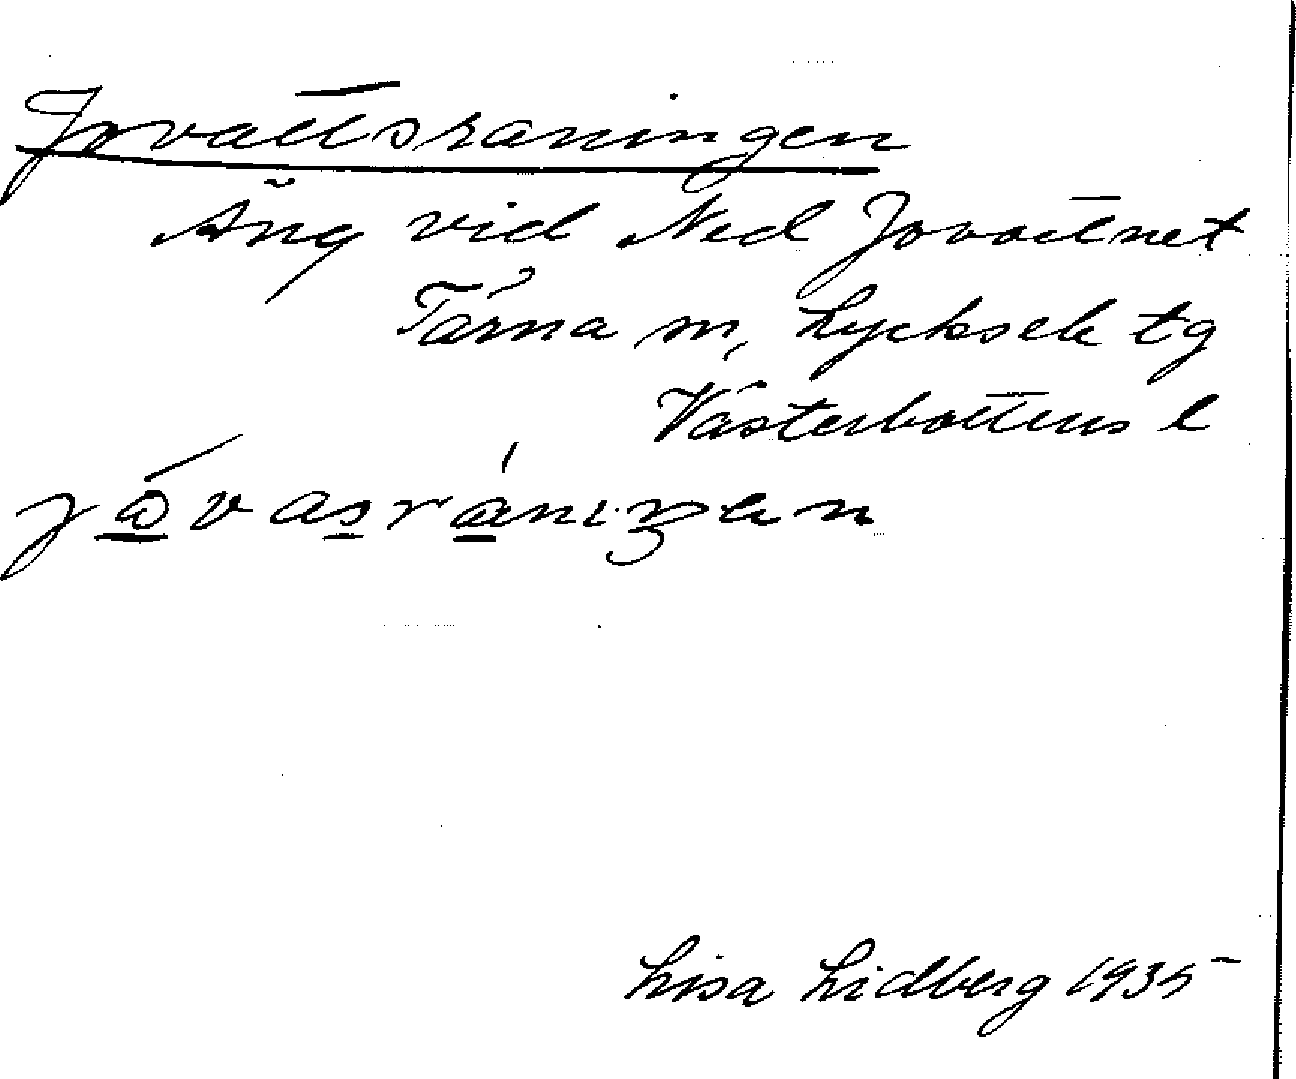 Jovattsraningen
Äng vid Ned Jovattnet
Tärna sn, Lycksele tg
Västerbottens l
jåvasrániŋen
Lisa Lidberg 1935